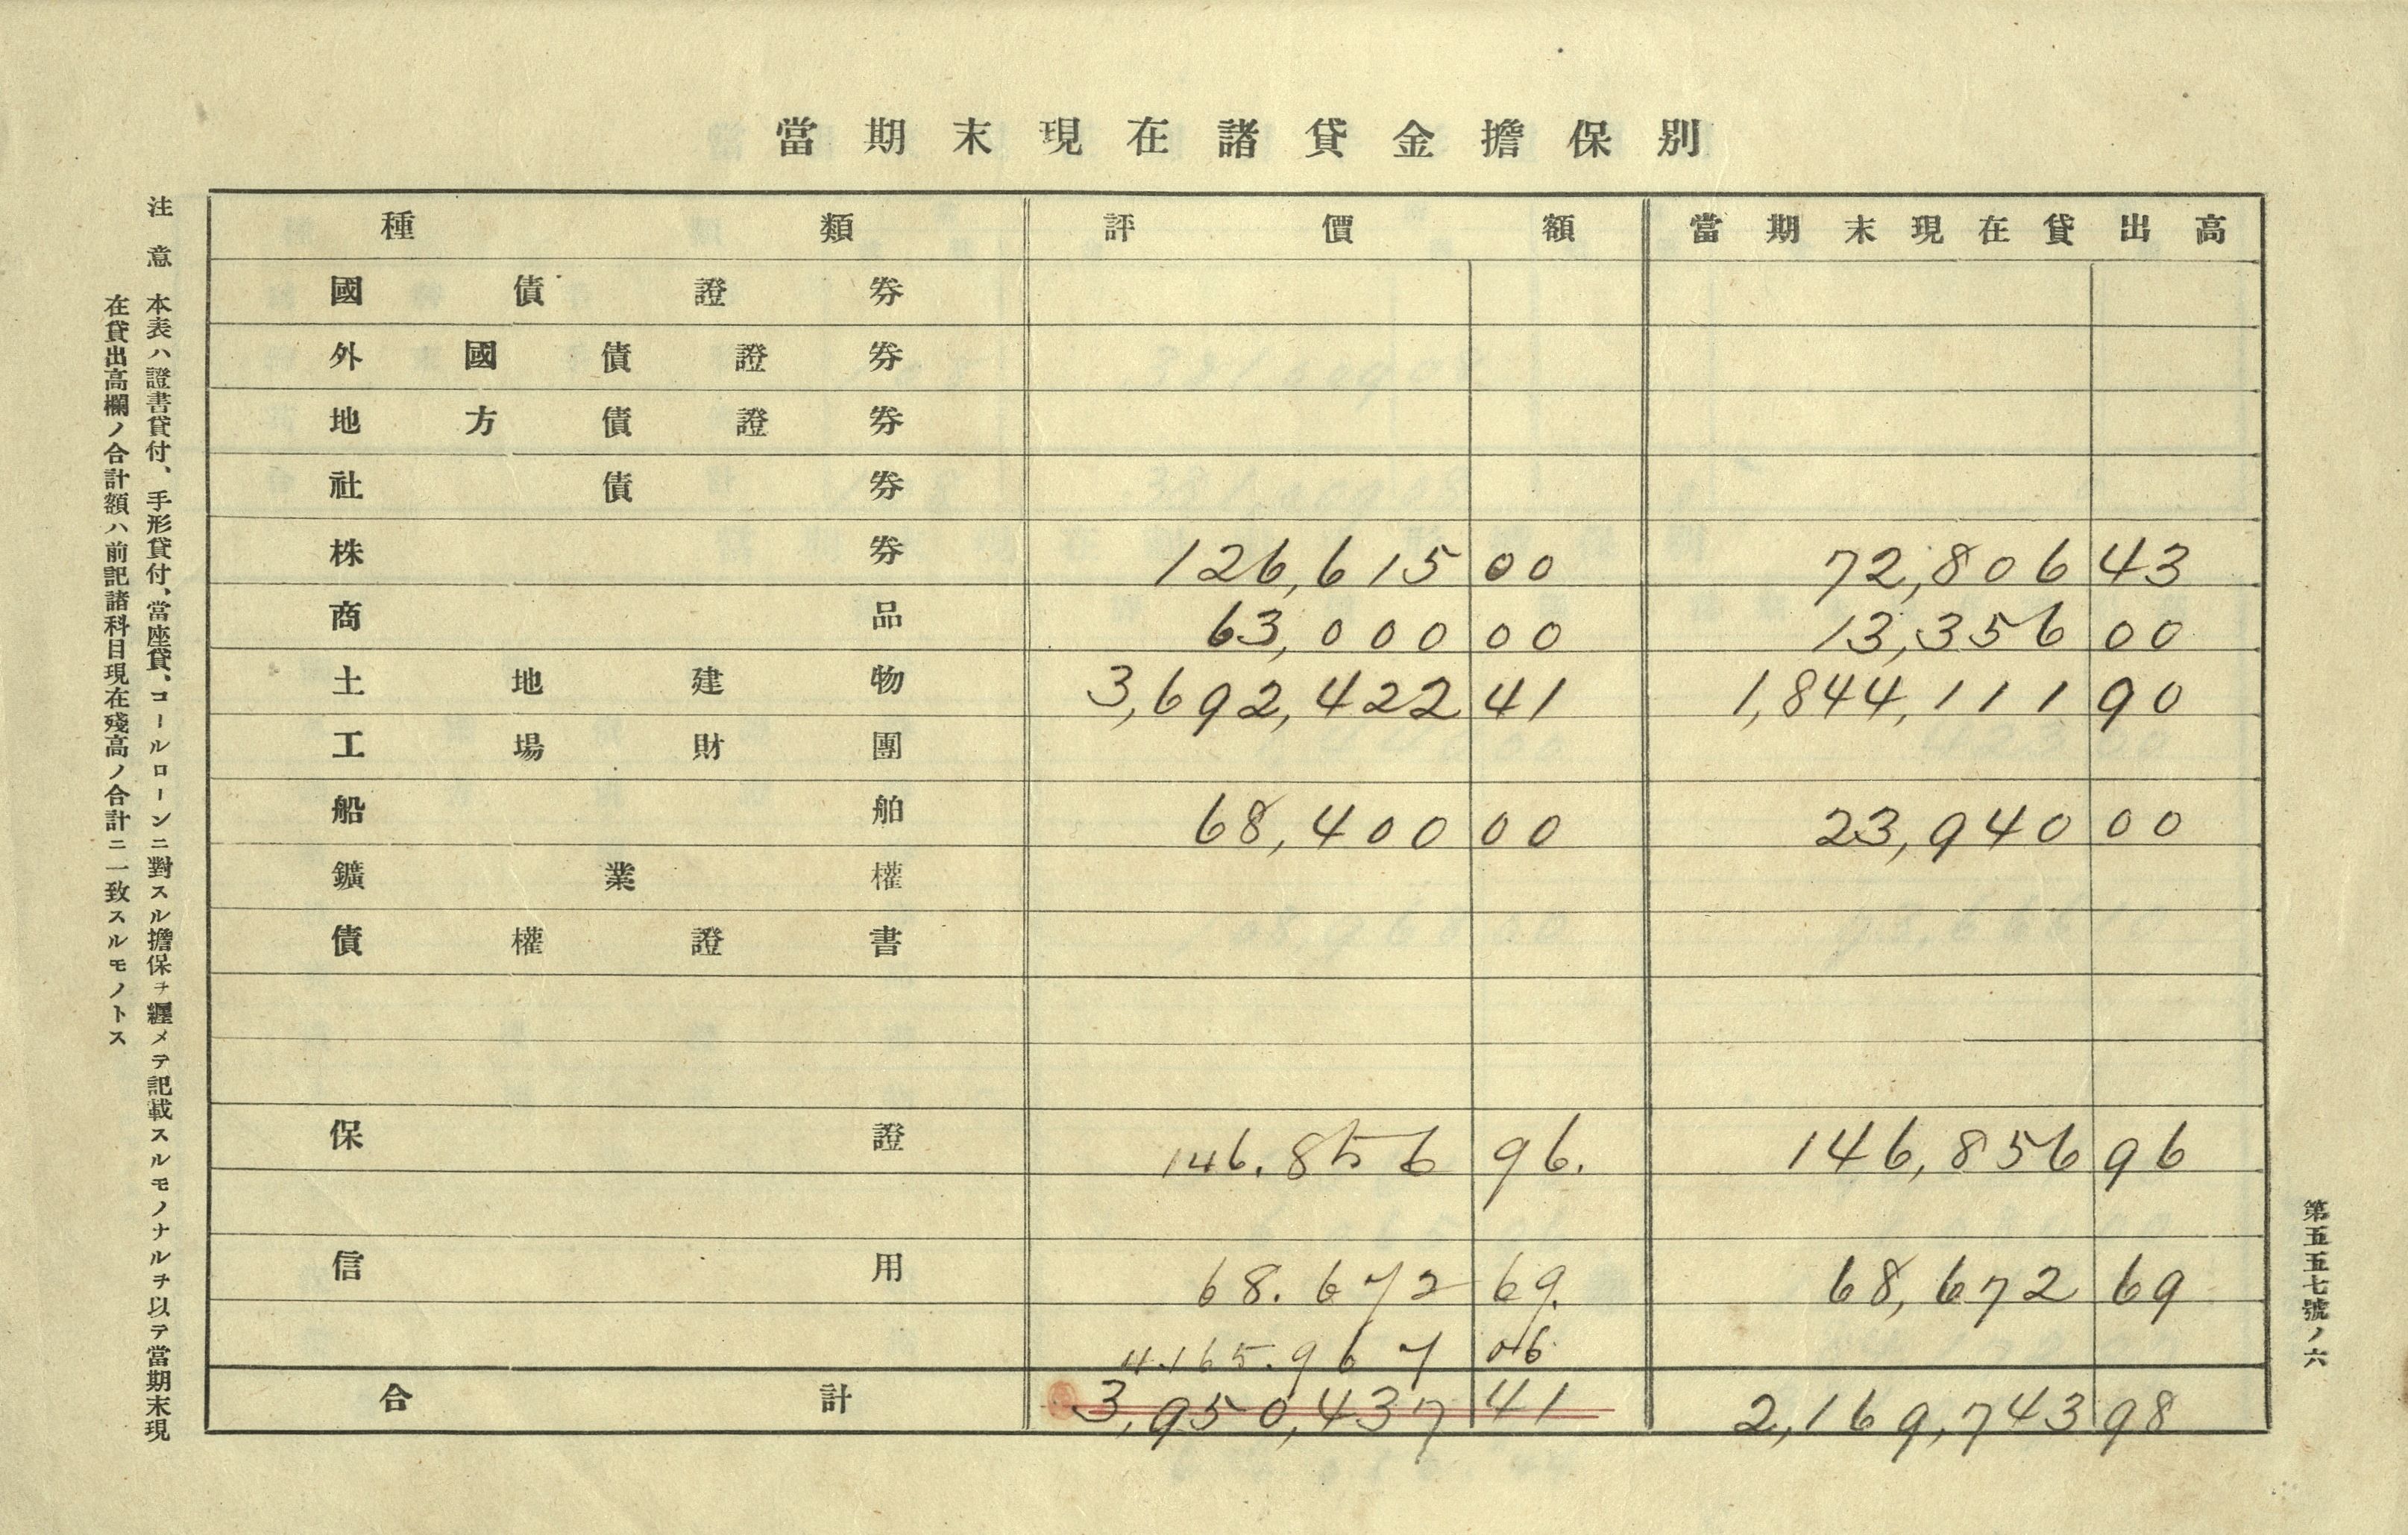 當期末現在諸貸金擔保別
種類 評價額 當期末現在貸出高
國債證券
外國債證券
地方債證券
社債券
株券 126,615 00 72,806 43
商品 63,000 00 13,356 00
土地建物 3,692,422 41 1,844,111 90
工場財團
船舶 68,400 00 23,940 00
鑛業權
債權證書
保證 146.856 96. 146,856 96
信用 68.672 69. 68,672 69
4.165.967 06
合計 3,950,437 41 2,169,743 98
注意 本表ハ證書貸付、手形貸付、當座貸、コールローンニ對スル擔保ヲ纒メテ記載スルモノナルヲ以テ當期末現
在貸出高欄ノ合計額ハ前記諸科目現在殘高ノ合計ニ一致スルモノトス
第五五七號ノ六